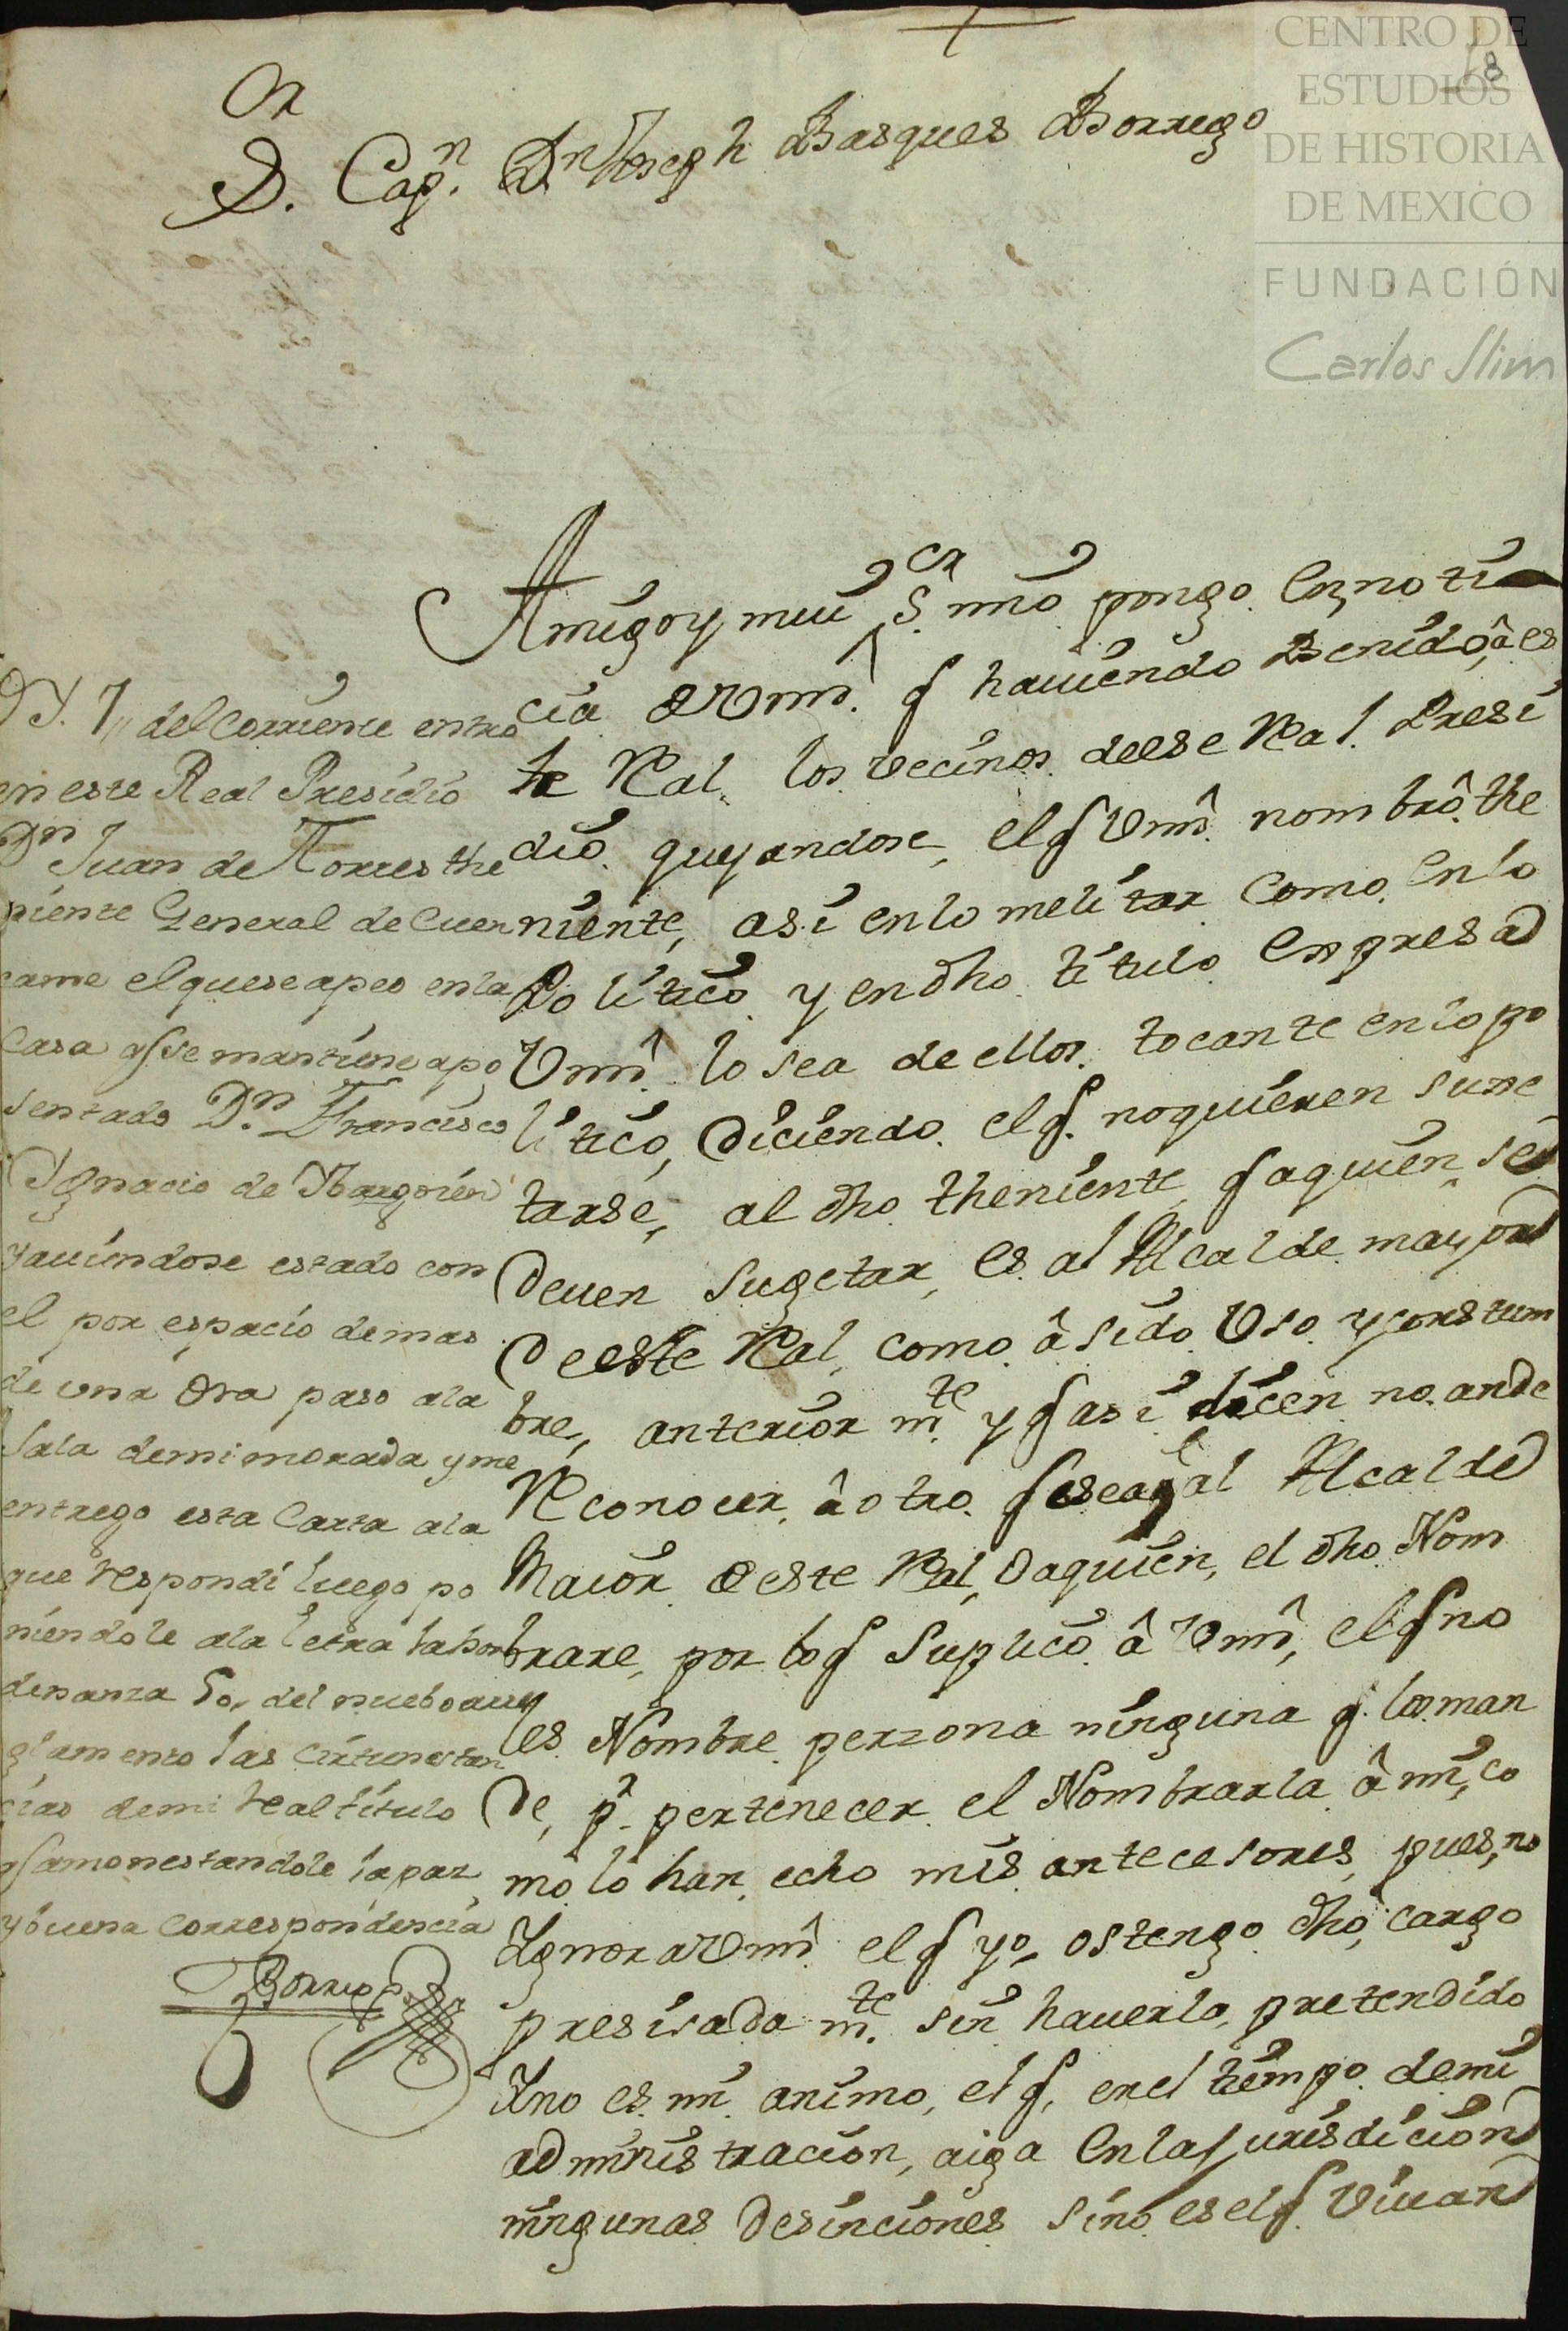 CENTRO DE
ESTUDIOS
DE HISTORIA
DE MEXICO
FUNDACIÓN
Carlos Slim
8
Or
S. Capn. Dn Joseph Basques Borrego
Amigo y mui Sor mio pongo En noti
cia de Vmd. q haviendo Benido, â es
te Real. los vecinos de ese Real. Presi
dio. queyandose, el q Vmd. nombrô. the
niente, asi en lo melitar Como. En lo
Politico y en dho. titulo. Expresa
Vmd. lo sea de ellos. tocante en lo po
litico, Diciendo. el q. no quieren suxe
tarse, al dho. theniente, q a quien se
Deven Sugetar, es al Alcalde. mayor
De este Real, Como. â sido. Uso. y constum
bre, anterior mte. y q asi dicen no. an de
Reconocer, â otro. q sea, al Alcalde
Maior de este Real, o a quien, el dho. Nom
brare, por lo q Suplico. â Vmd, el q no
les. Nombre perzona ninguna q. los man
De, pr. pertenecer. el Nombrarla. â mi, co
mo lo han, echo mis antecesores, pues, no
Ygnora Vmd. el q yo, ostengo dho, cargo
presisada mte. sin haverlo, pretendido
Y no es. mi. animo, el q, en el tiempo. de mi
administracion, aiga En la Jurisdicion
ningunas Desinciones sino, es el q. Vivan
D. 7,, del Corriente entro
en este Real Presidio
Dn Juan de Torres the
niente General de Cuen
came el que se apeo en la
Casa q se mantiene apo
sentado Dn. Francisco
Ygnacio de Ybargoien
y aviendose estado con
el por espacio de mas
de una Ora paso a la
Sala de mi morada y me
entrego esta Carta a la
que respondi luego po
niendole a la letra la hor
denanza 50, del nuebo arre
glamento las Cirtunstan
cias de mi Real titulo
q amonestandole la paz
y buena Correspondencia
Borrego